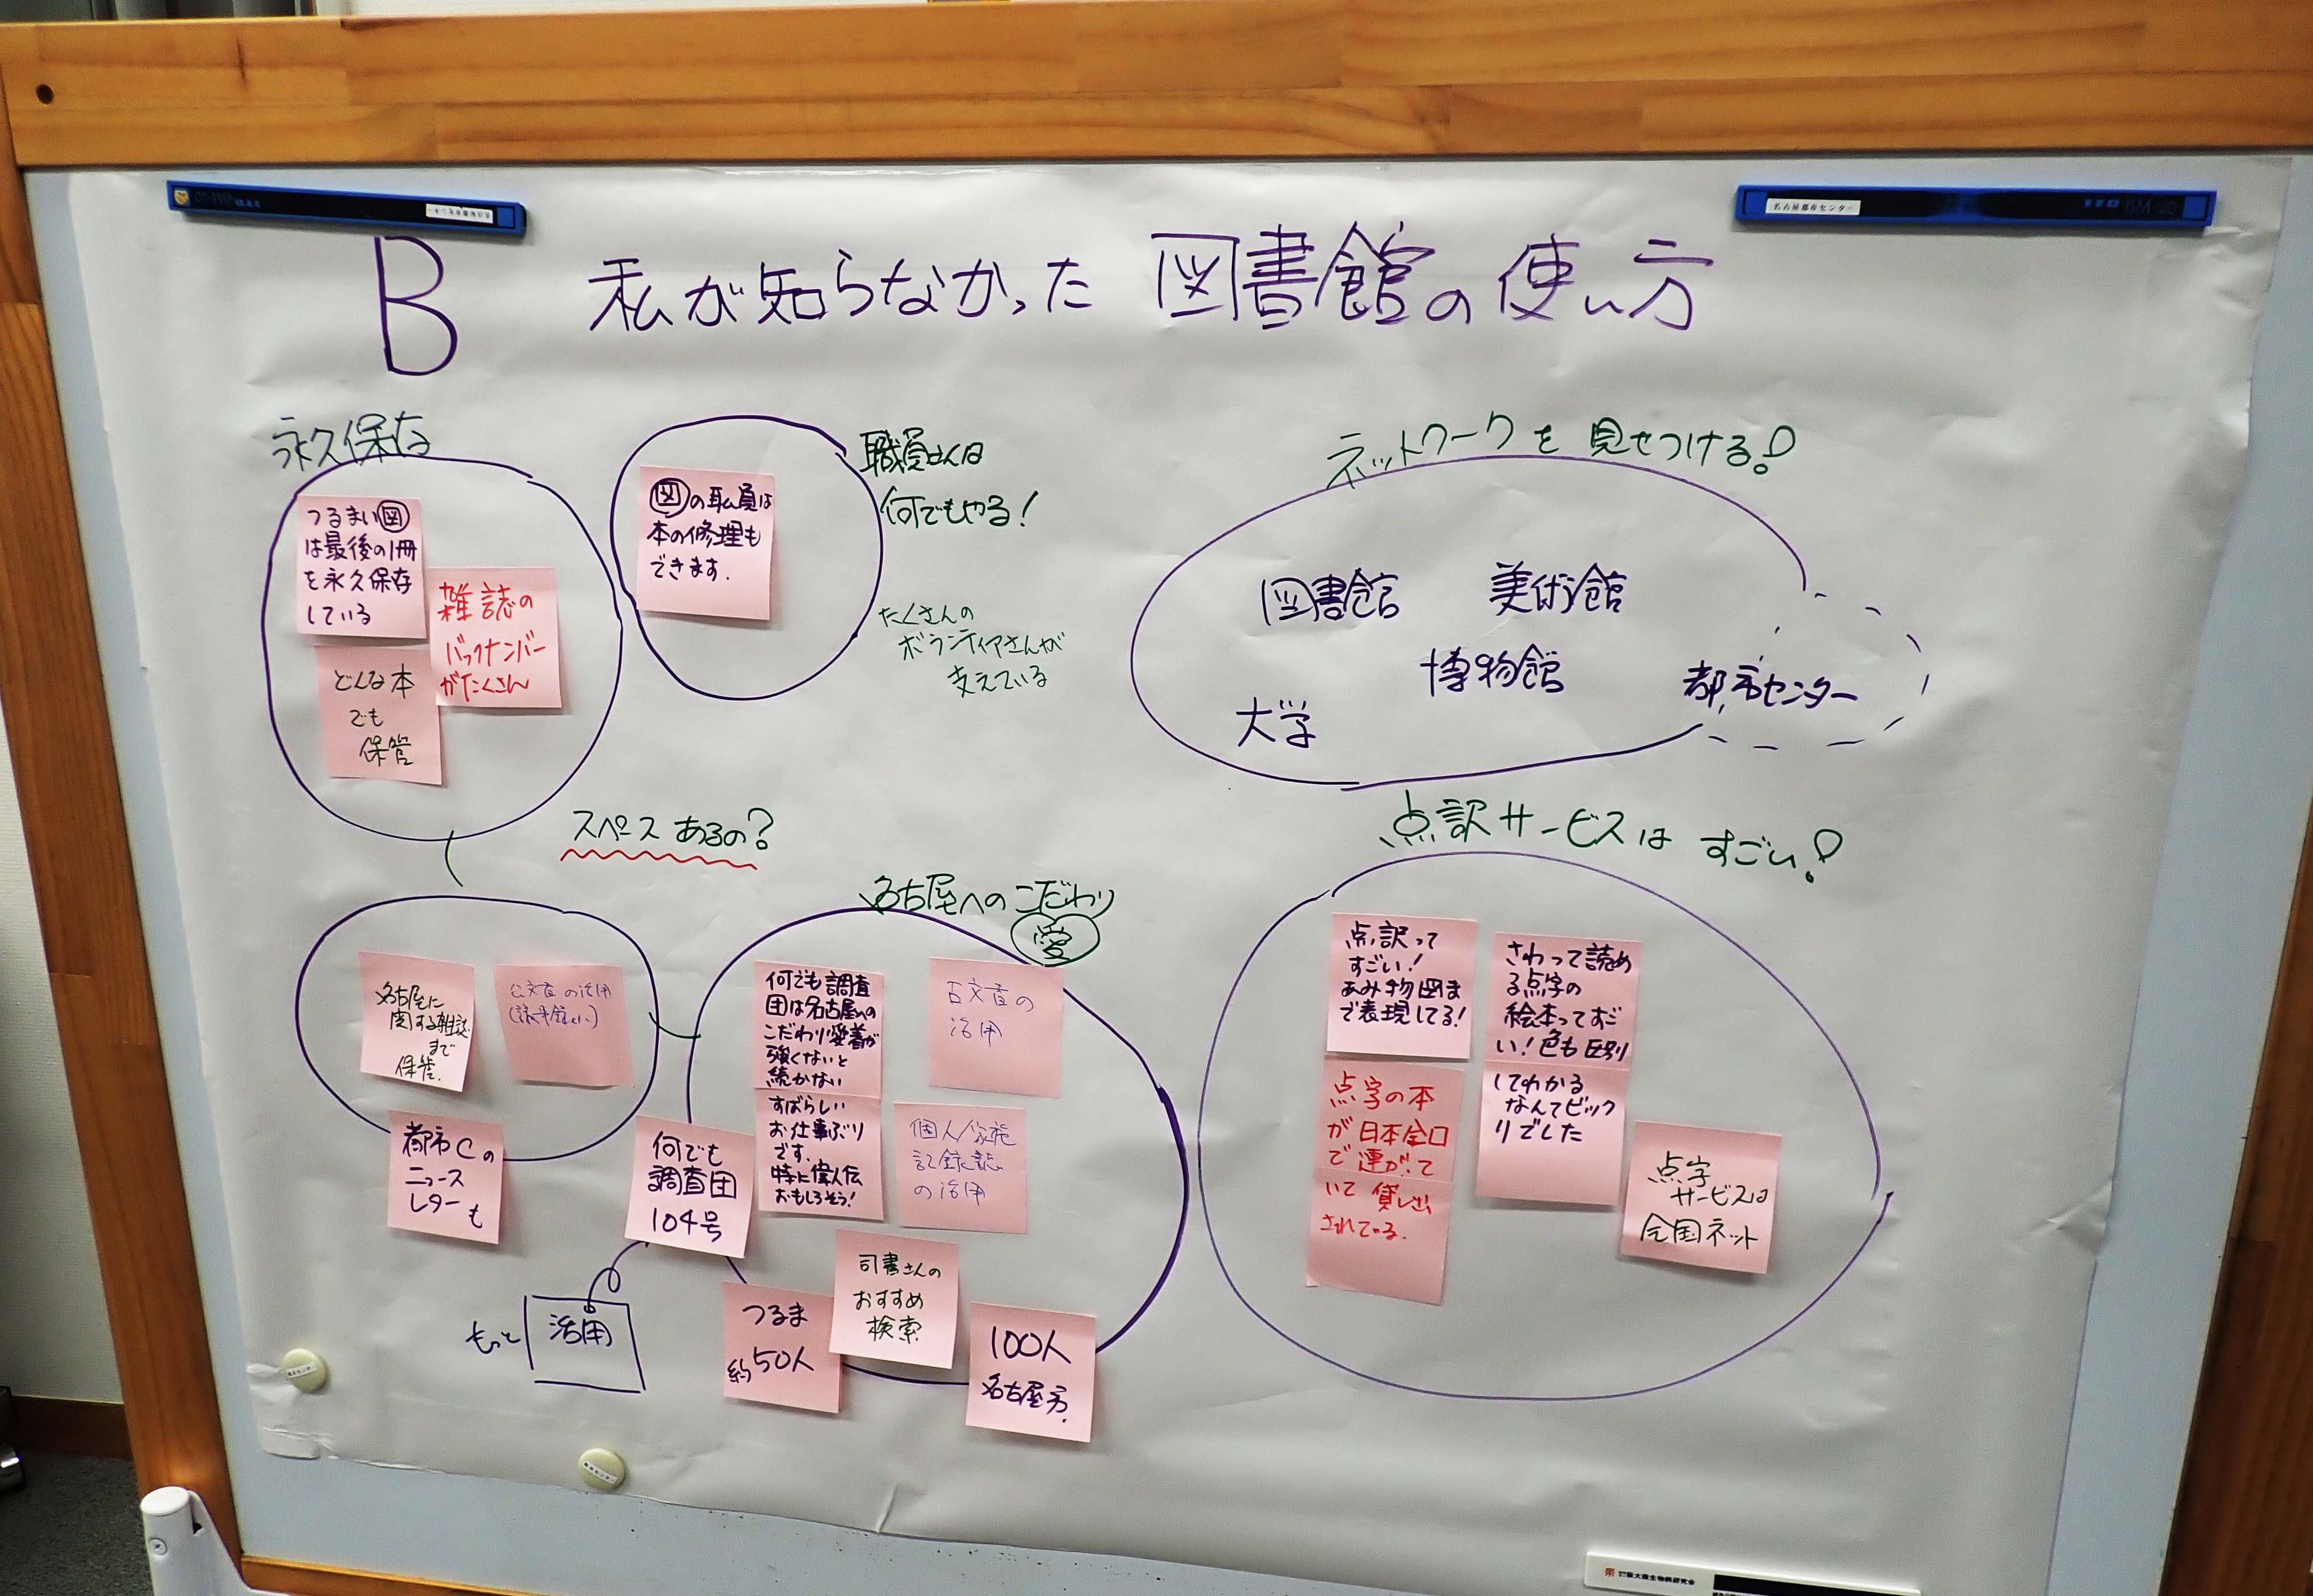 B 私が知らなかった 図書館の使い方
永久保存
つるまい図
は最後の1冊
を永久保存
している
雑誌の
バックナンバー
がたくさん
どんな本
でも
保管
図の職員は
本の修理も
できます.
職員さんは
何でもやる!
たくさんの
ボランティアさんが
支えている
ネットワークを 見せつける!
図書館
美術館
博物館
都市センター
大学
スペースあるの?
名古屋に
関する雑誌
まで
保管.
公文書の活用
都市Cの
ニュース
レターも
名古屋へのこだわり
愛
何でも調査
団は名古屋への
こだわり愛着が
強くないと
続かない
すばらしい
お仕事ぶり
です.
特に偉人伝
おもしろそう!
古文書の
活用
個人/家族
記録誌
の活用
何でも
調査団
104号
もっと
活用
つるま
約50人
司書さんの
おすすめ
検索
100人
名古屋市.
点訳サービスは すごい!
点訳って
すごい!
あみ物図ま
で表現してる!
さわって読め
る点字の
絵本ってすご
い!色も区別
してわかる
なんてビック
リでした
点字の本
が日本全国
で連がって
いて 貸し出
されている.
点字
サービスは
全国ネット
名古屋都市センター